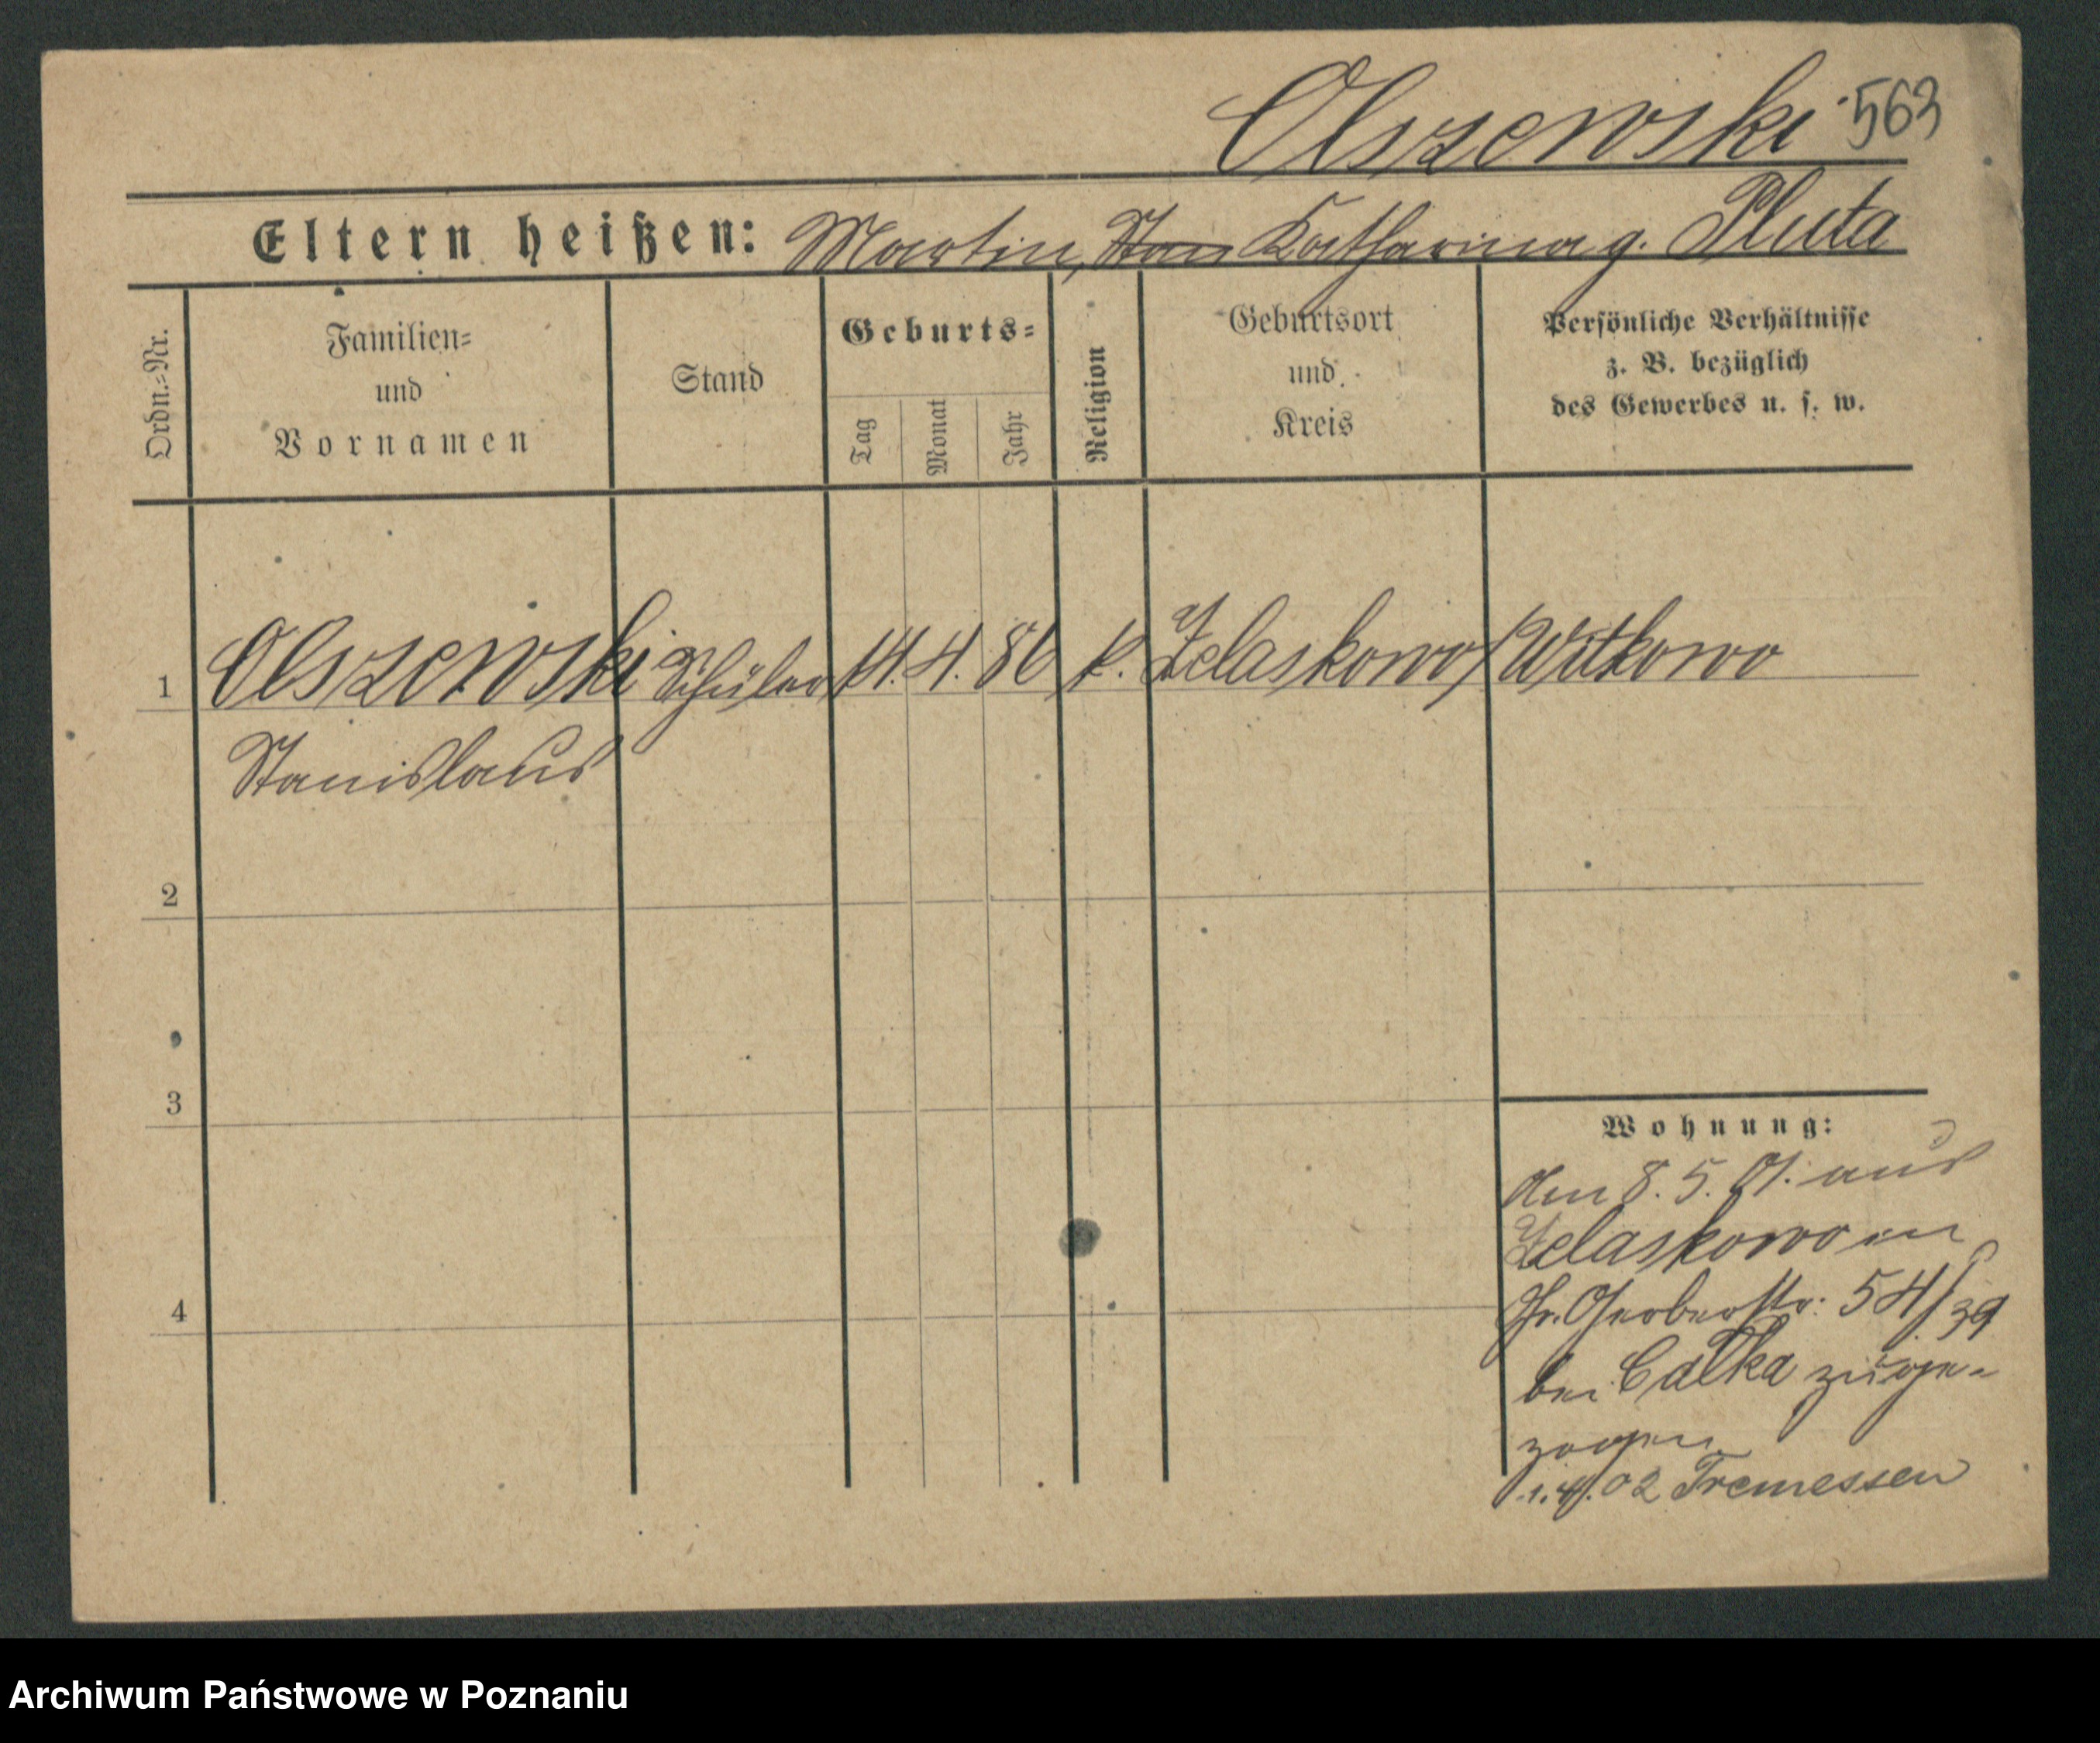 Olszewski 563
Eltern heißen: Martin, Stan Katharina g. Pluta
Ordn.=Nr.
Familien=
und
Vornamen
Stand
Geburts=
Tag
Monat
Jahr
Religion
Geburtsort
und
Kreis
Persönliche Verhältnisse
z. B. bezüglich
des Gewerbes u. s. w.
1 Olszewski Schüler 14. 4. 86 k. Zelaskowo/Witkowo
Stanislaus
2
3
4
Wohnung:
Am 8. 5. 01. aus
Zelaskowo in
Gr. Gerberstr: 54/39
bei Całka zuge-
zogen
1.4.02 Tremessen
Archiwum Państwowe w Poznaniu